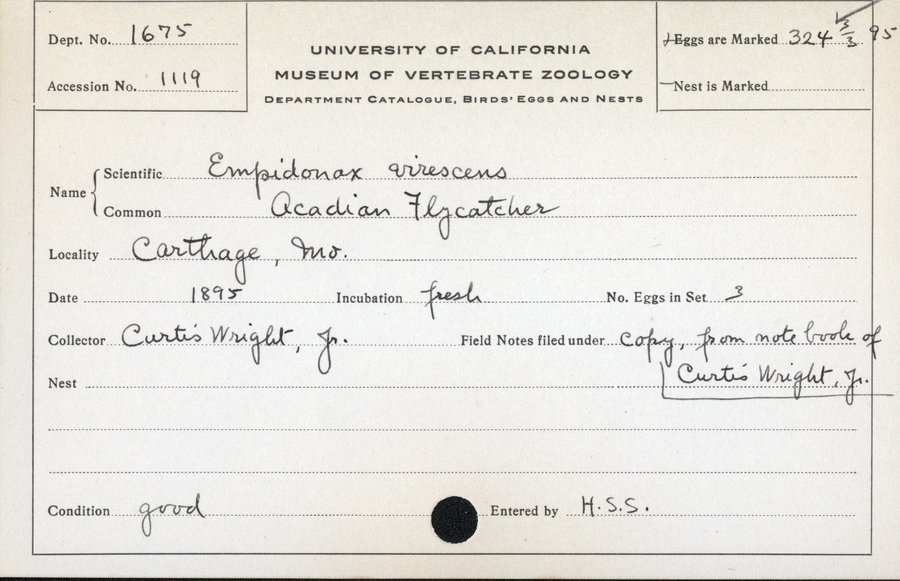 Dept. No. 1675
Accession No. 1119
UNIVERSITY OF CALIFORNIA
MUSEUM OF VERTEBRATE ZOOLOGY
DEPARTMENT CATALOGUE, BIRDS' EGGS AND NESTS
Eggs are Marked 324 3/3 95
Nest is Marked
Name
Scientific Empidonax virescens
Common Acadian Flycatcher
Locality Carthage, Mo.
Date 1895 Incubation fresh No. Eggs in Set 3
Collector Curtis Wright, Jr. Field Notes filed under copy, from note book of
Curtis Wright, Jr.
Nest
Condition good Entered by H.S.S.